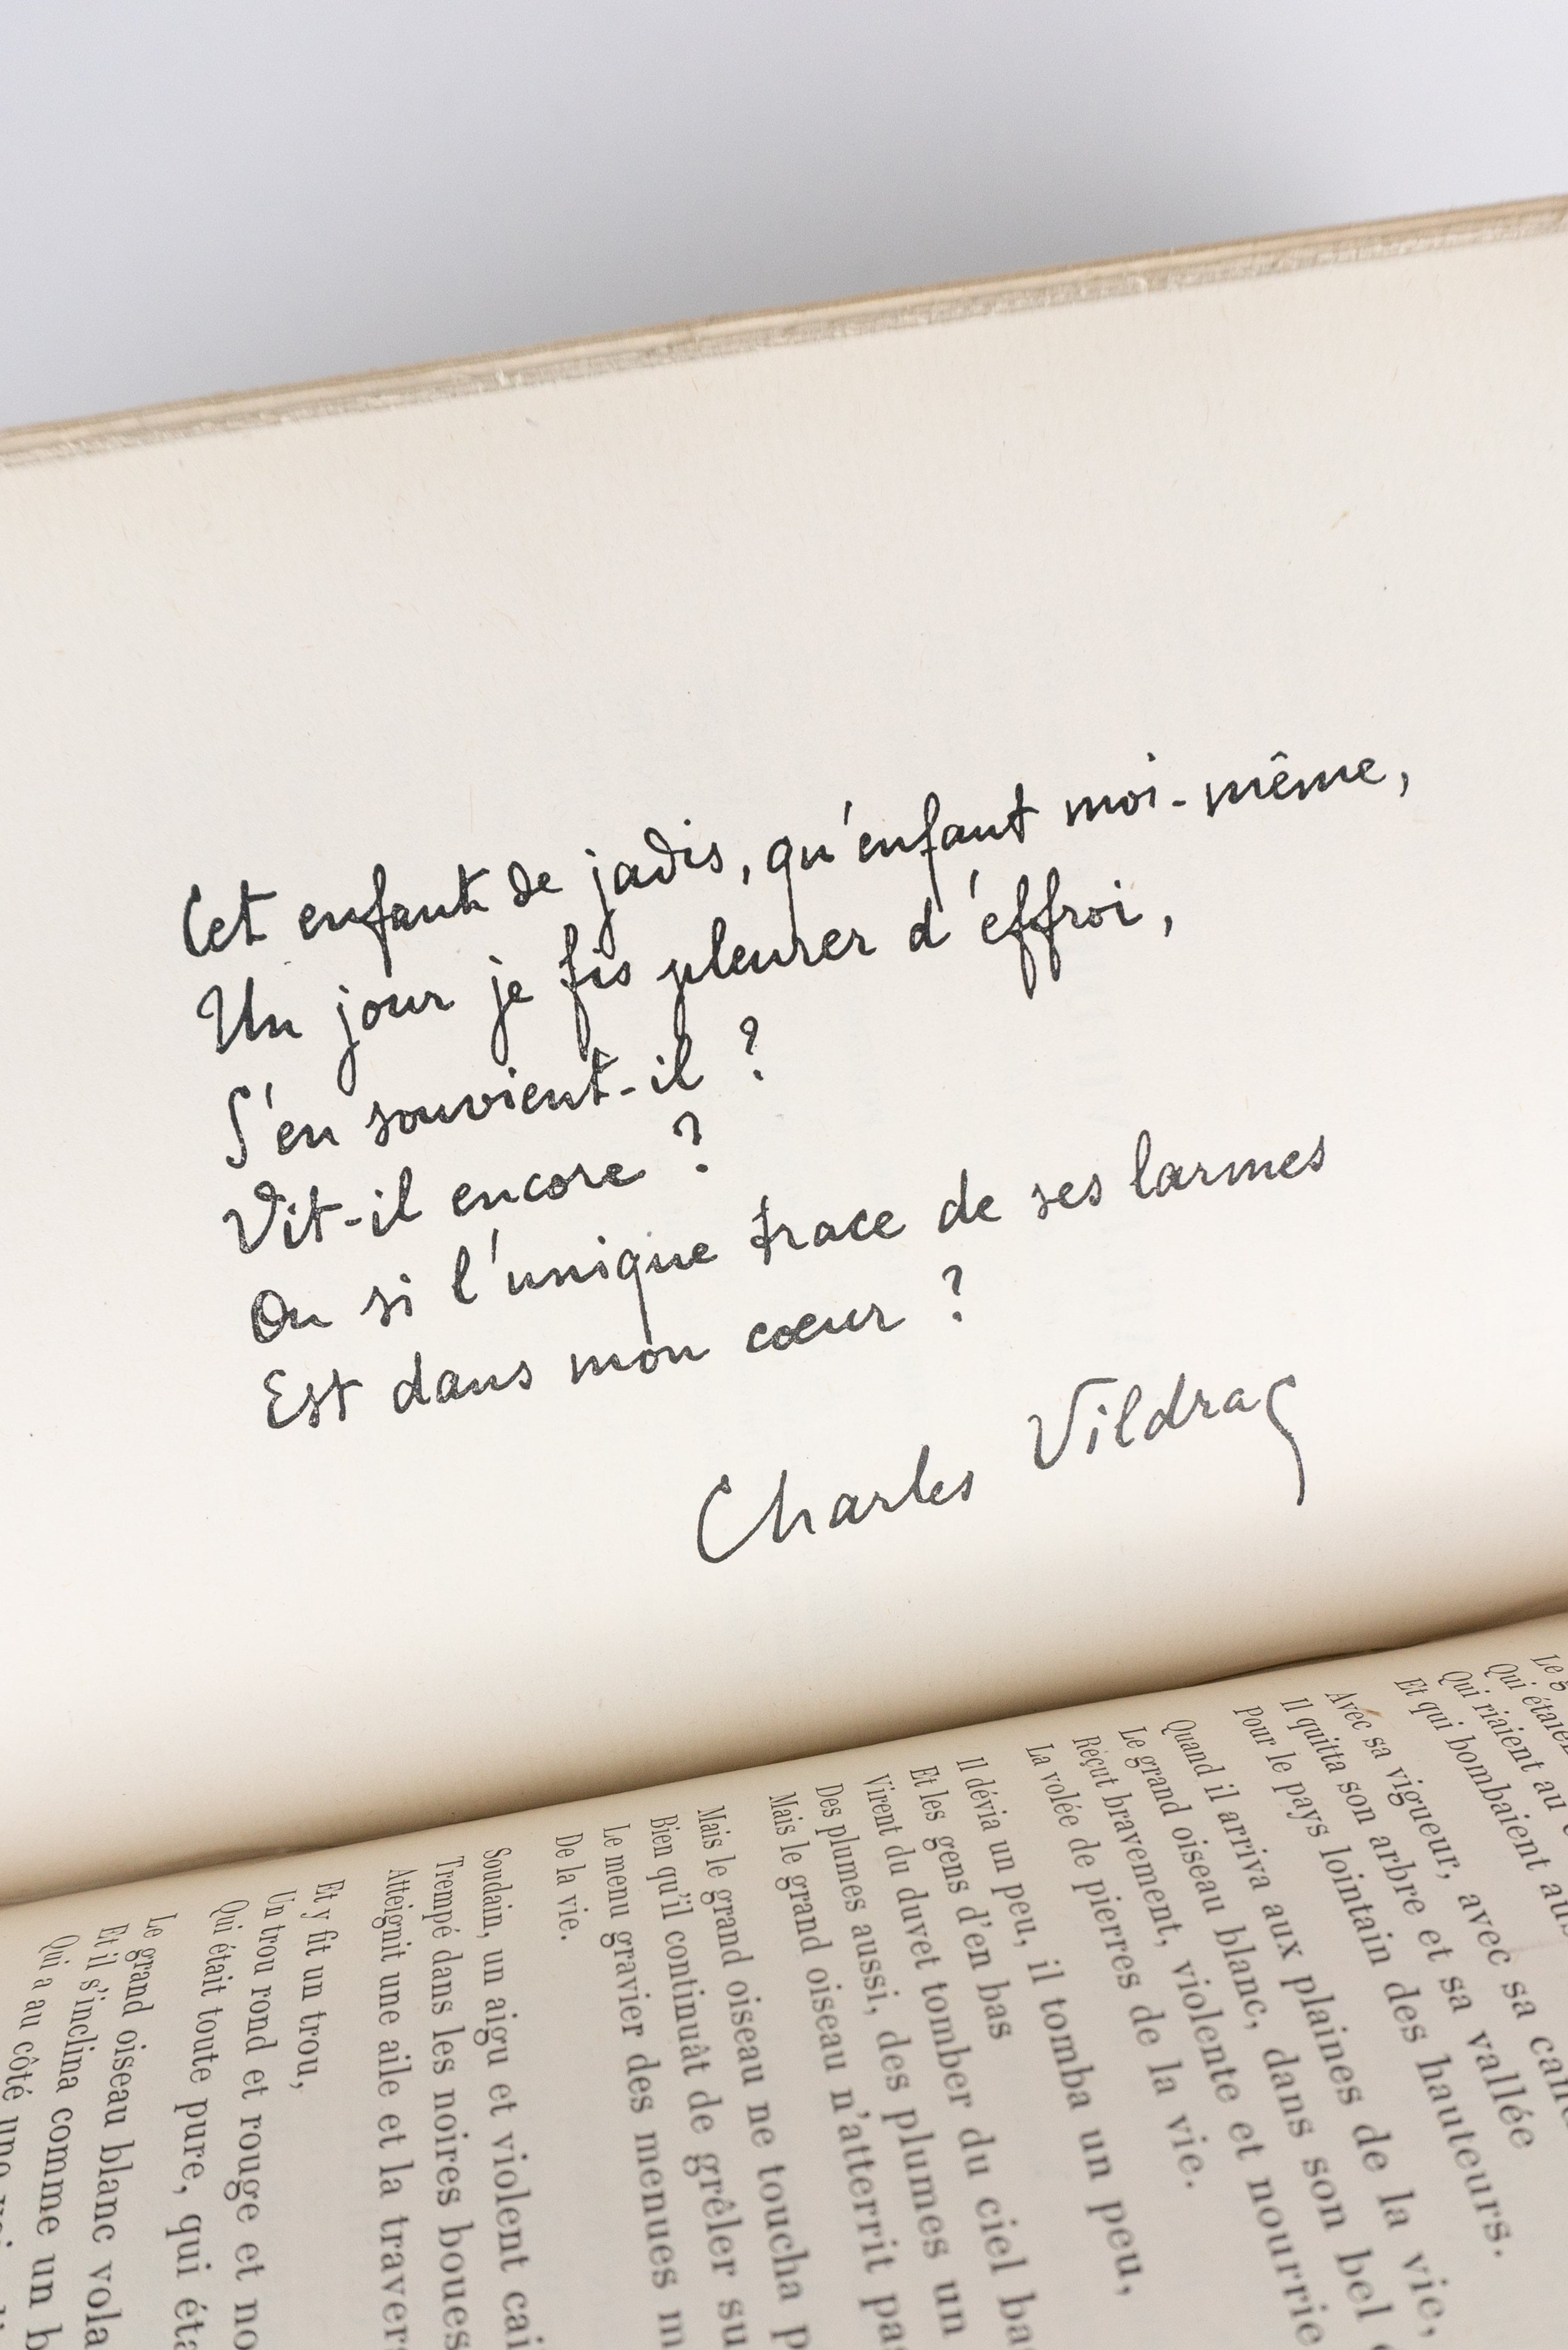 Cet enfant de jadis, qu'enfant moi-même,
Un jour je fis pleurer d'effroi,
S'en souvient-il ?
Vit-il encore ?
Ou si l'unique trace de ses larmes
Est dans mon cœur ?
Charles Vildrac
Qui étaien
Qui riaient au
Et qui bombaient au
Avec sa vigueur, avec sa
Il quitta son arbre et sa vallée
Pour le pays lointain des hauteurs.
Quand il arriva aux plaines de la vie,
Le grand oiseau blanc, dans son bel
Réçut bravement, violente et nourrie
La volée de pierres de la vie.
Il dévia un peu, il tomba un peu,
Et les gens d'en bas
Virent du duvet tomber du ciel ba
Des plumes aussi, des plumes un
Mais le grand oiseau n'atterrit pa
Mais le grand oiseau ne toucha p
Bien qu'il continuât de grêler su
Le menu gravier des menues m
De la vie.
Soudain, un aigu et violent cai
Trempé dans les noires boues
Atteignit une aile et la traver
Et y fit un trou,
Un trou rond et rouge et no
Qui était toute pure, qui éta
Le grand oiseau blanc vola
Et il s'inclina comme un b
Qui a au côté une